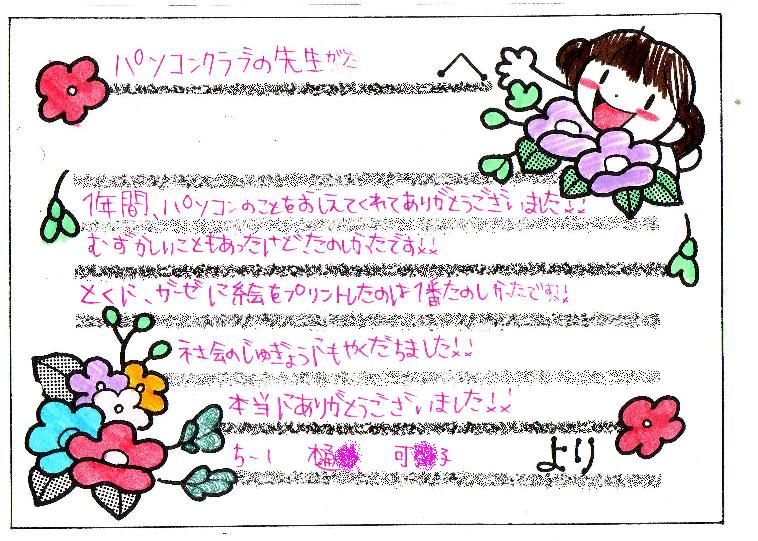 パソコンクラブの先生がた へ
1年間、パソコンのことをおしえてくれてありがとうございました!!
むずかしいこともあったけどたのしかったです!!
とくに、ガーゼに絵をプリントしたのは1番たのしかったです!!
社会のじゅぎょうにもやくだちました!!
本当にありがとうございました!!
5-1 樋 可 子 より